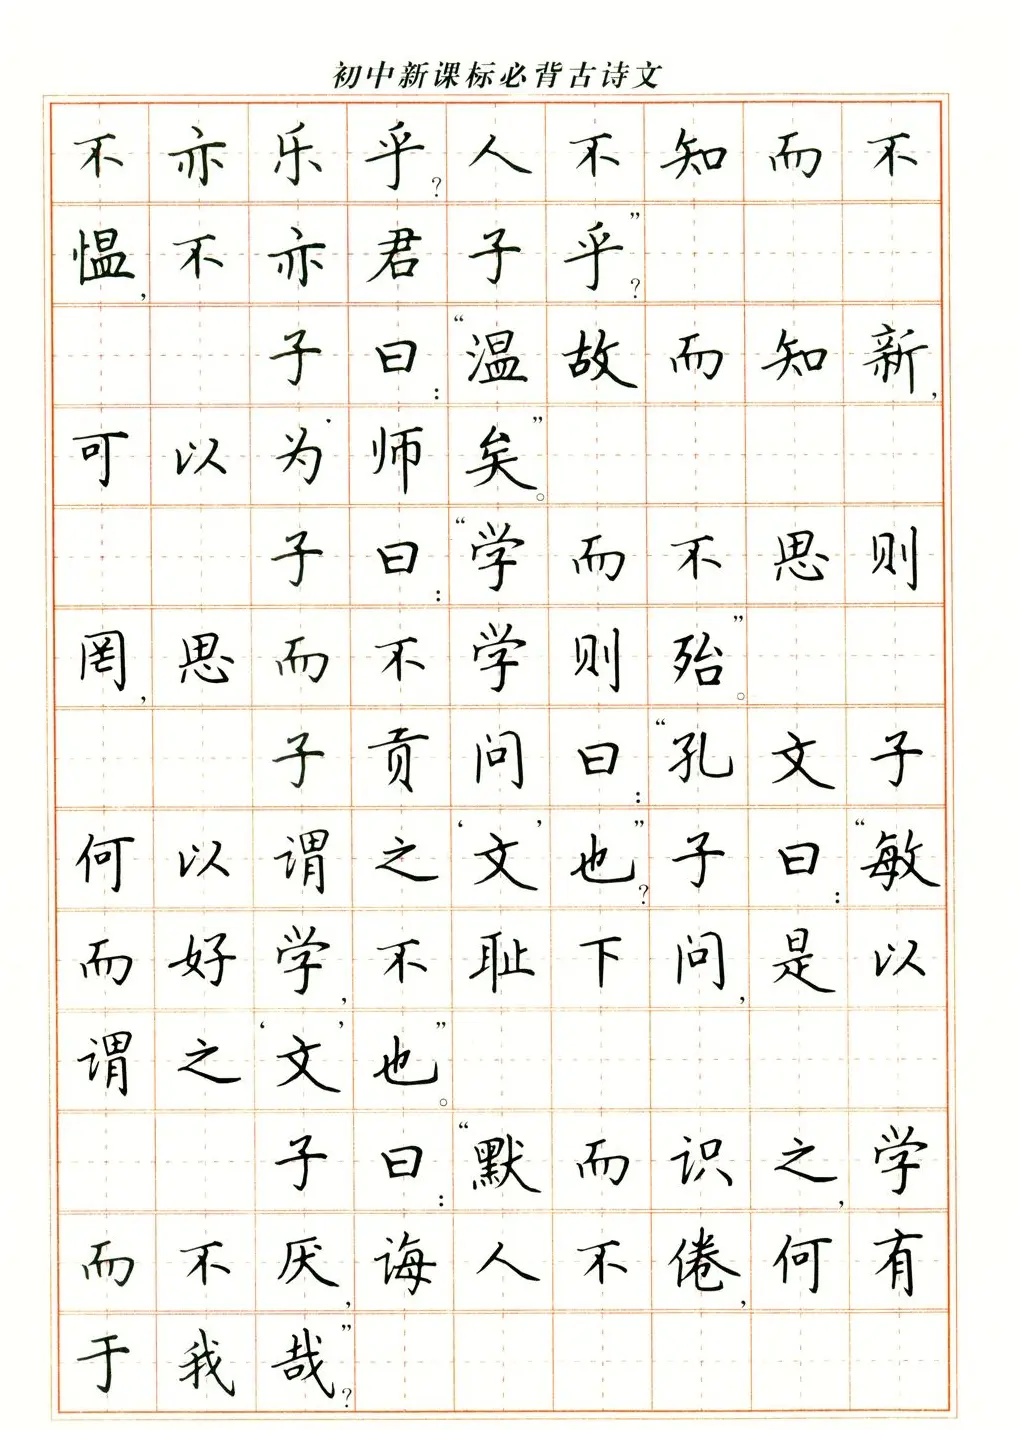 初中新课标必背古诗文
不亦乐乎？人不知而不
愠，不亦君子乎？”
子曰：“温故而知新，
可以为师矣。”
子曰：“学而不思则
罔，思而不学则殆。”
子贡问曰：“孔文子
何以谓之‘文’也？”子曰：“敏
而好学，不耻下问，是以
谓之‘文’也。”
子曰：“默而识之，学
而不厌，诲人不倦，何有
于我哉？”